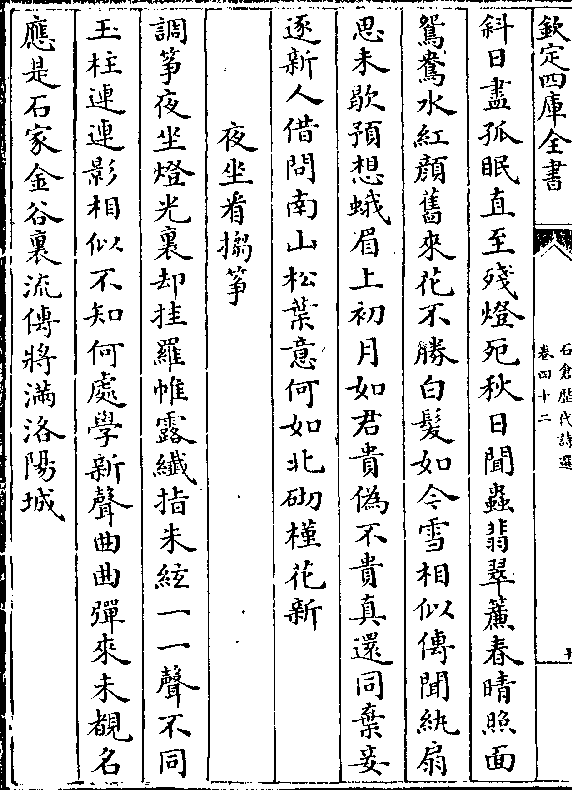 欽定四庫全書
石倉歷代詩選
卷四十二
斜日盡孤眠直至殘燈死秋日聞蟲翡翠簾春晴照面
鴛鴦水紅顔舊來花不勝白髮如今雪相似傳聞紈扇
思未歇預想蛾眉上初月如君貴偽不貴真還同棄妾
逐新人借問南山松葉意何如北砌槿花新
夜坐看搊筝
調筝夜坐燈光裏却挂羅帷露纖指朱絃一一聲不同
玉柱連連影相似不知何處學新聲曲曲彈來未覩名
應是石家金谷裏流傳將滿洛陽城